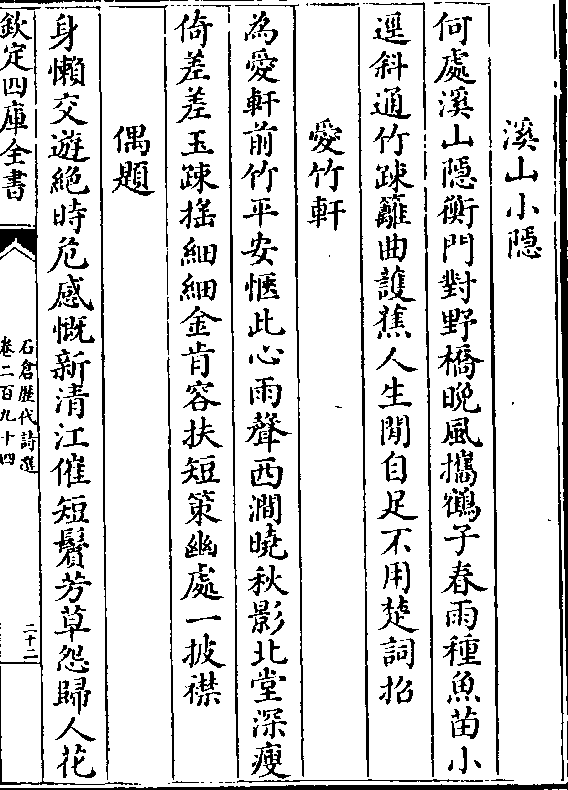 溪山小隱
何處溪山隱衡門對野橋晚風攜鶴子春雨種魚苗小
逕斜通竹踈籬曲護蕉人生閒自足不用楚詞招
愛竹軒
為愛軒前竹平安愜此心雨聲西澗曉秋影北堂深瘦
倚差差玉踈揺細細金肯容扶短策幽處一披襟
偶題
身懶交遊絶時危感慨新清江催短鬢芳草怨歸人花
欽定四庫全書
石倉歴代詩選
卷二百九十四
二十二